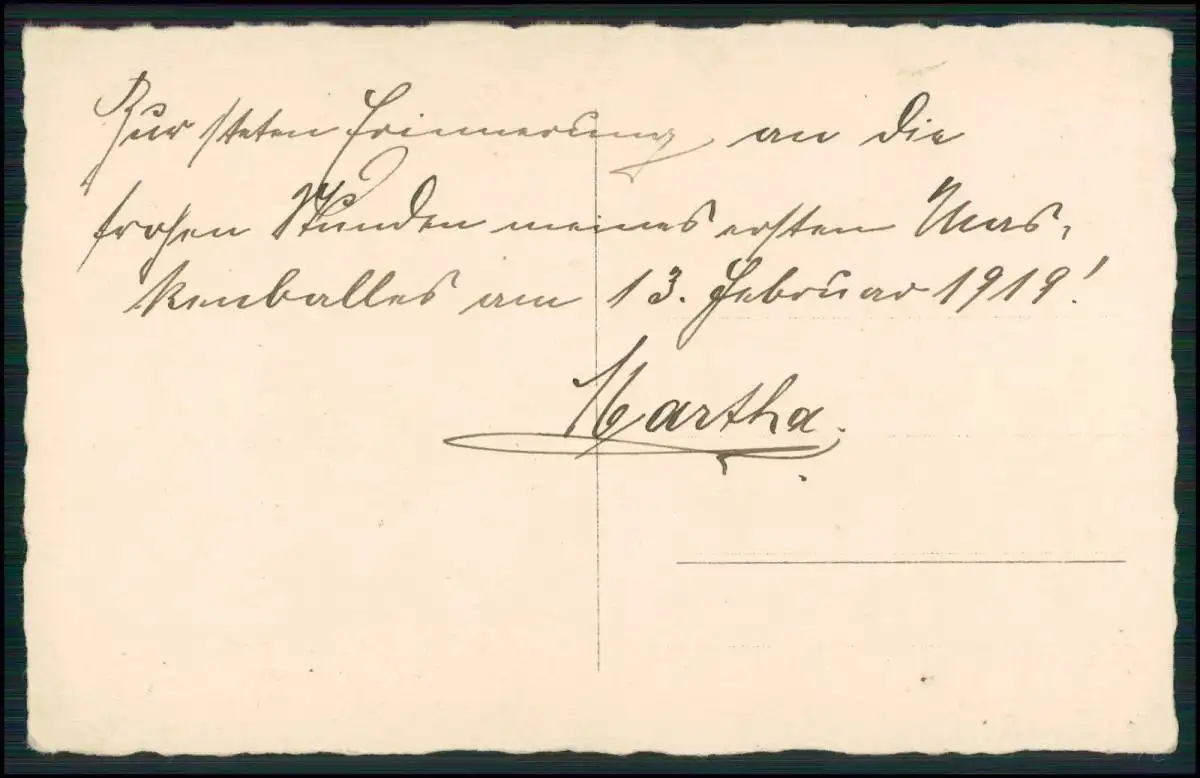 Zur steten Erinnerung an die
frohen Stunden meines ersten Mas-
kenballes am 13. Februar 1919!
Martha.